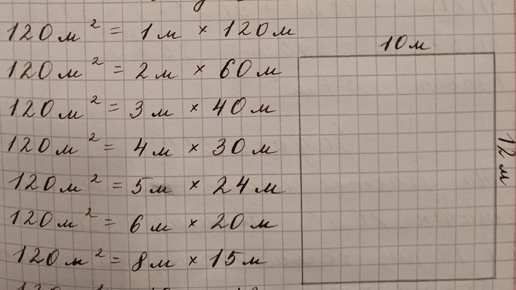 120м² = 1м × 120м
120м² = 2м × 60м
120м² = 3м × 40м
120м² = 4м × 30м
120м² = 5м × 24м
120м² = 6м × 20м
120м² = 8м × 15м
10м
12м